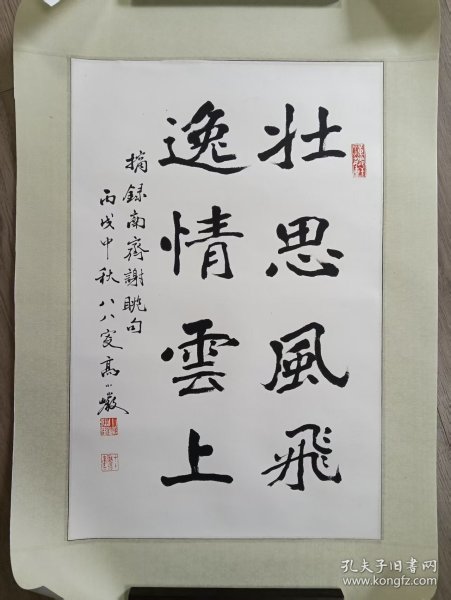 壮思風飛
逸情雲上
摘録南齊謝眺句
丙戌中秋八八叟高小巖
孔夫子旧书网
www.kongfz.com